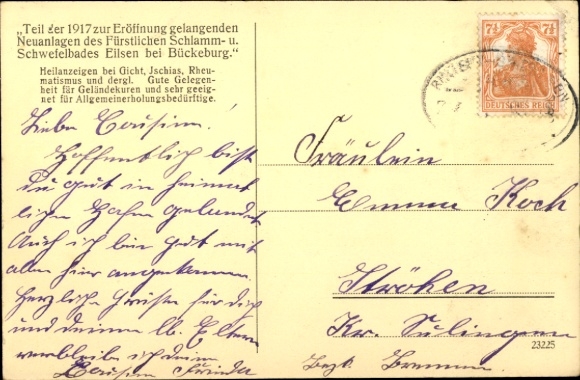 „Teil der 1917 zur Eröffnung gelangenden
Neuanlagen des Fürstlichen Schlamm- u.
Schwefelbades Eilsen bei Bückeburg."
Heilanzeigen bei Gicht, Jschias, Rheu-
matismus und dergl. Gute Gelegen-
heit für Geländekuren und sehr geeig-
net für Allgemeinerholungsbedürftige.
Liebe Cousine!
Hoffentlich bist
Du gut in heimat
lichen Hafen gelandet
Auch ich bin gut mit
allen hier angekommen.
Herzliche Grüße für dich
und deinen lb. Eltern
verbleibe ich deine
Cousine Frieda
7½ 7½
DEUTSCHES REICH
Fräulein
Emma Koch
Ströhen
Kr. Sulingen
23225
Bezk. Bremen.